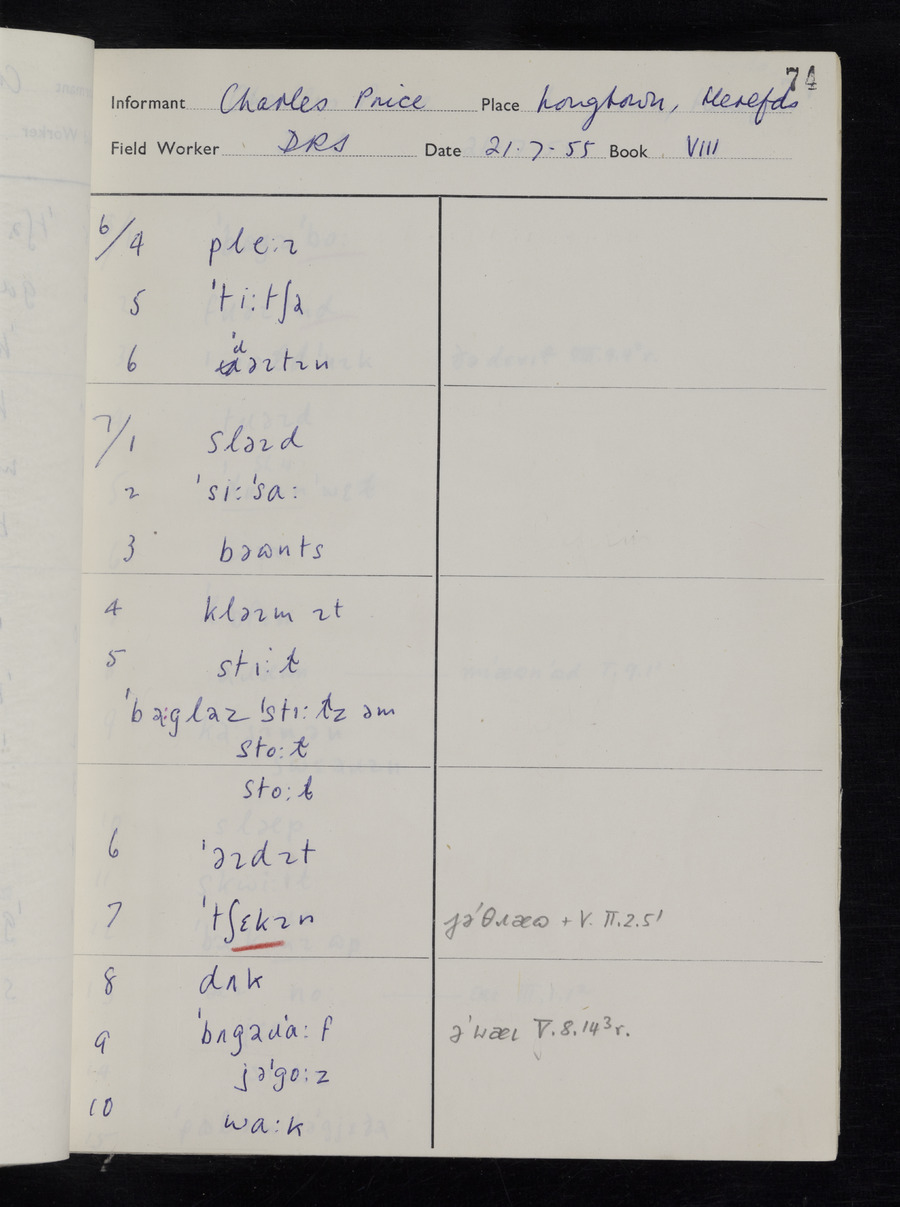 74
Informant Charles Price Place Longtown, Herefds
Field Worker DRS Date 21·7·55 Book VIII
6/4 pleːɪ
5 ˈtiːtʃə
6 ˈdəɪtɪn
7/1 sləɪd
2 ˈsiːˈsaː
3 bəɷnts
4 kləɪm ɪt
5 stiːɫ
ˈbəːgləz ˈstiːɫz əm
stoːɫ
stoːɫ
6 ˈəɪdɪt
7 ˈtʃɛkɪn jəˈθɹæɷ + V. VI.2.5¹
8 dʌk
9 ˈbʌgəɹˈaːf əˈwæɪ V.8.14³r.
jəˈgoːz
10 waːk